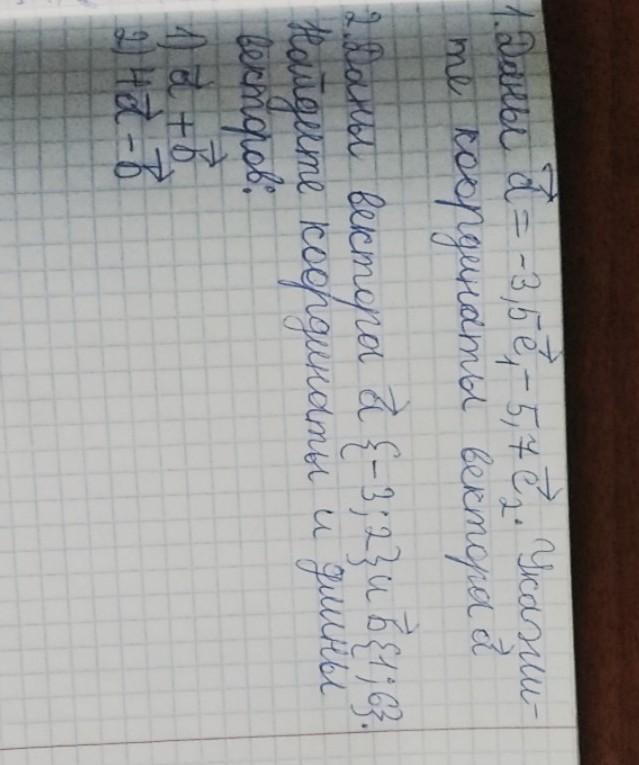 1. Даны a⃗ = -3,5e⃗₁ - 5,7e⃗₂. Укажи-
те координаты вектора a⃗
2. Даны вектора a⃗ {-3; 2} и b⃗ {1; 6}.
Найдите координаты и длины
векторов:
1) a⃗ + b⃗
2) 4a⃗ - b⃗